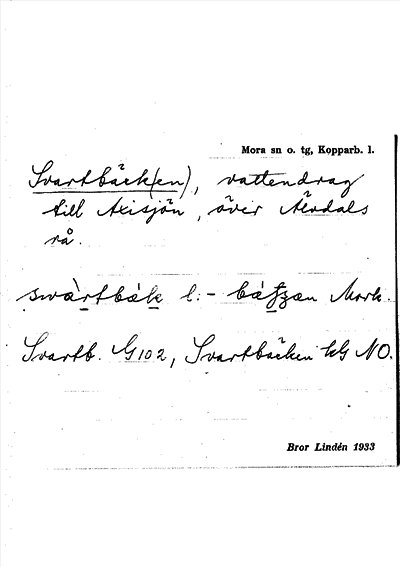 Mora sn o. tg, Kopparb. l.
Svartbäck(en), vattendrag
till Axisjön, över Älvdals
rå.
swàrtbák l. - bátsen Mork.
Svartb. G102, Svartbäcken kG NO.
Bror Lindén 1933